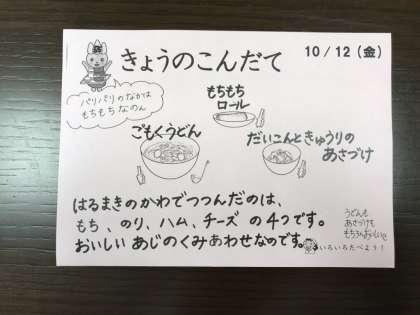 きょうのこんだて
10/12(金)
パリパリのなかは
もちもちなのん
もちもち
ロール
ごもくうどん
だいこんときゅうりの
あさづけ
はるまきのかわでつつんだのは、
もち、のり、ハム、チーズ の4つです。
おいしい あじのくみあわせなのです。
うどんも
あさづけも
いろいろたべよう!